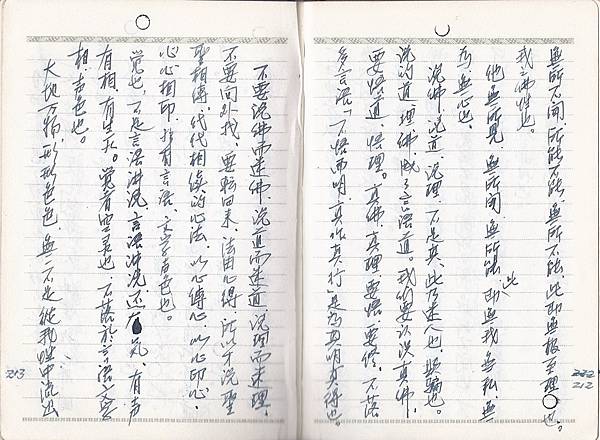 無所不聞、所能不能、無所不能、此即無極至理也。
我之佛性也。
他無所見、無所聞、無所能、此即無我、無私、無
為、無心也。
說佛、說道、說理、不是真、此乃迷人也、欺騙也。
說的道理佛、成了言語道。我們要認識真佛、
要悟道、悟理。真佛、真理、要悟、要修、不落
多言語、不悟而明、真作真行、是為真明真得也。
212
不要說佛而迷佛、說道而迷道、說理而迷理、
不要向外找、要轉回來、法由心得、所以才說聖
聖相傳、代代相傳的心法、以心傳心、以心印心、
心心相印、非有言語、文字聲色也。
覚也、不是言語講說、言語講說还有氣、有声
有相、有生灭。覚者空灵也、不落於言語文字
相、声色也。
大地万物、形形色色、無一不是從我性中流出
213